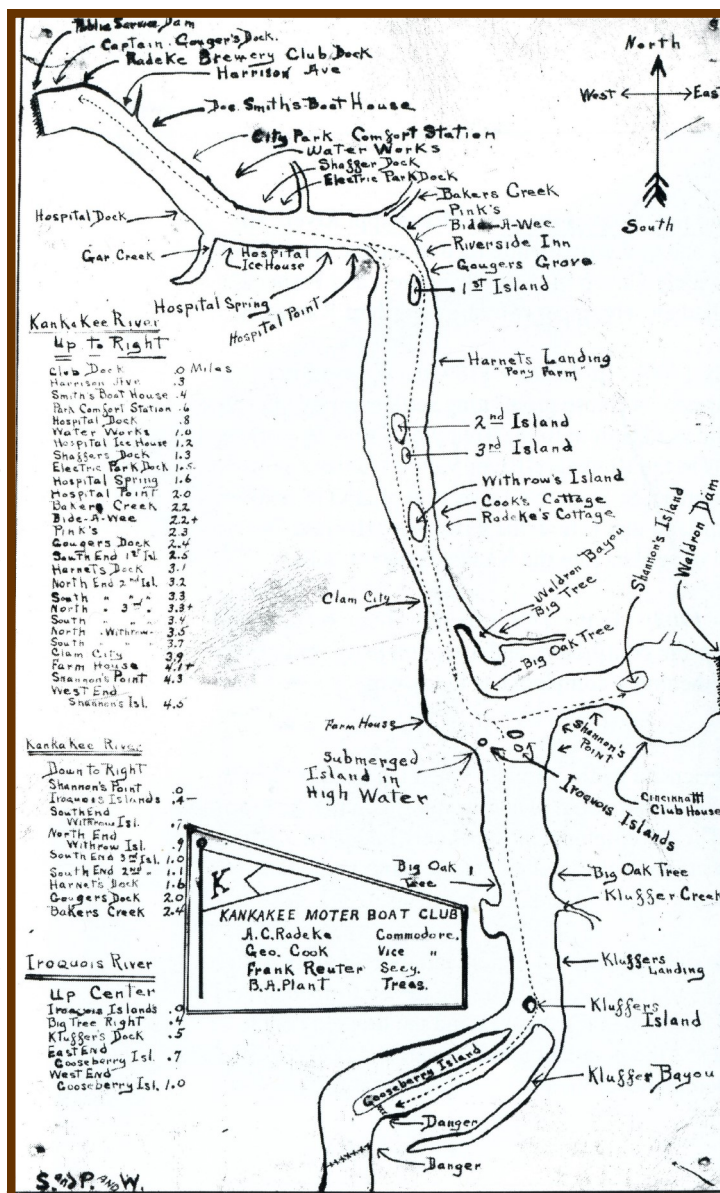 Public Service Dam
Captain Gouger's Dock
Radeke Brewery Club Dock
Harrison Ave
Doc Smith's Boat House
City Park Comfort Station
Water Works
Shagger Dock
Electric Park Dock
Bakers Creek
Pink's
Bide-A-Wee
Riverside Inn
Gougers Grove
1st Island
North
West
East
South
Hospital Dock
Gar Creek
Hospital
Ice House
Hospital Spring
Hospital Point
Harnets Landing
"Pony Farm"
2nd Island
3rd Island
Withrow's Island
Cook's Cottage
Radeke's Cottage
Waldron Bayou
Big Tree
Big Oak Tree
Shannon's Island
Waldron Dam
Clam City
Farm House
Submerged
Island in
High Water
Shannon's
Point
Iroquois Islands
Cincinatti
Club House
Big Oak
Tree
Big Oak Tree
Kluffer Creek
Kluffers
Landing
Kluffers
Island
Kluffer Bayou
Gooseberry Island
Danger
Danger
Kankakee River
Up to Right
Club Dock .0 Miles
Harrison Ave .3
Smith's Boat House .4
Park Comfort Station .6
Hospital Dock .8
Water Works 1.0
Hospital Ice House 1.2
Shaggers Dock 1.3
Electric Park Dock 1.5
Hospital Spring 1.6
Hospital Point 2.0
Bakers Creek 2.2
Bide-A-Wee 2.2+
Pink's 2.3
Gougers Dock 2.4
South End 1st Isl. 2.5
Harnets Dock 3.1
North End 2nd Isl. 3.2
South " " " 3.3
North " 3rd " 3.3+
South " " " 3.4
North " Withrow " 3.5
South " " 3.7
Clam City 3.9
Farm House 4.1+
Shannon's Point 4.3
West End
Shannon's Isl. 4.5
Kankakee River
Down to Right
Shannon's Point .0
Iroquois Islands .4-
South End
Withrow Isl. .7
North End
Withrow Isl. .9
South End 3rd Isl. 1.0
South End 2nd " 1.1
Harnet's Dock 1.6
Gougers Dock 2.0
Bakers Creek 2.4
K
KANKAKEE MOTER BOAT CLUB
A.C. Radeke Commodore.
Geo. Cook Vice "
Frank Reuter Secy.
B.A. Plant Treas.
Iroquois River
Up Center
Iroquois Islands .0
Big Tree Right .4
Kluffer's Dock .5
East End
Gooseberry Isl. .7
West End
Gooseberry Isl. 1.0
S. AND P. AND W.